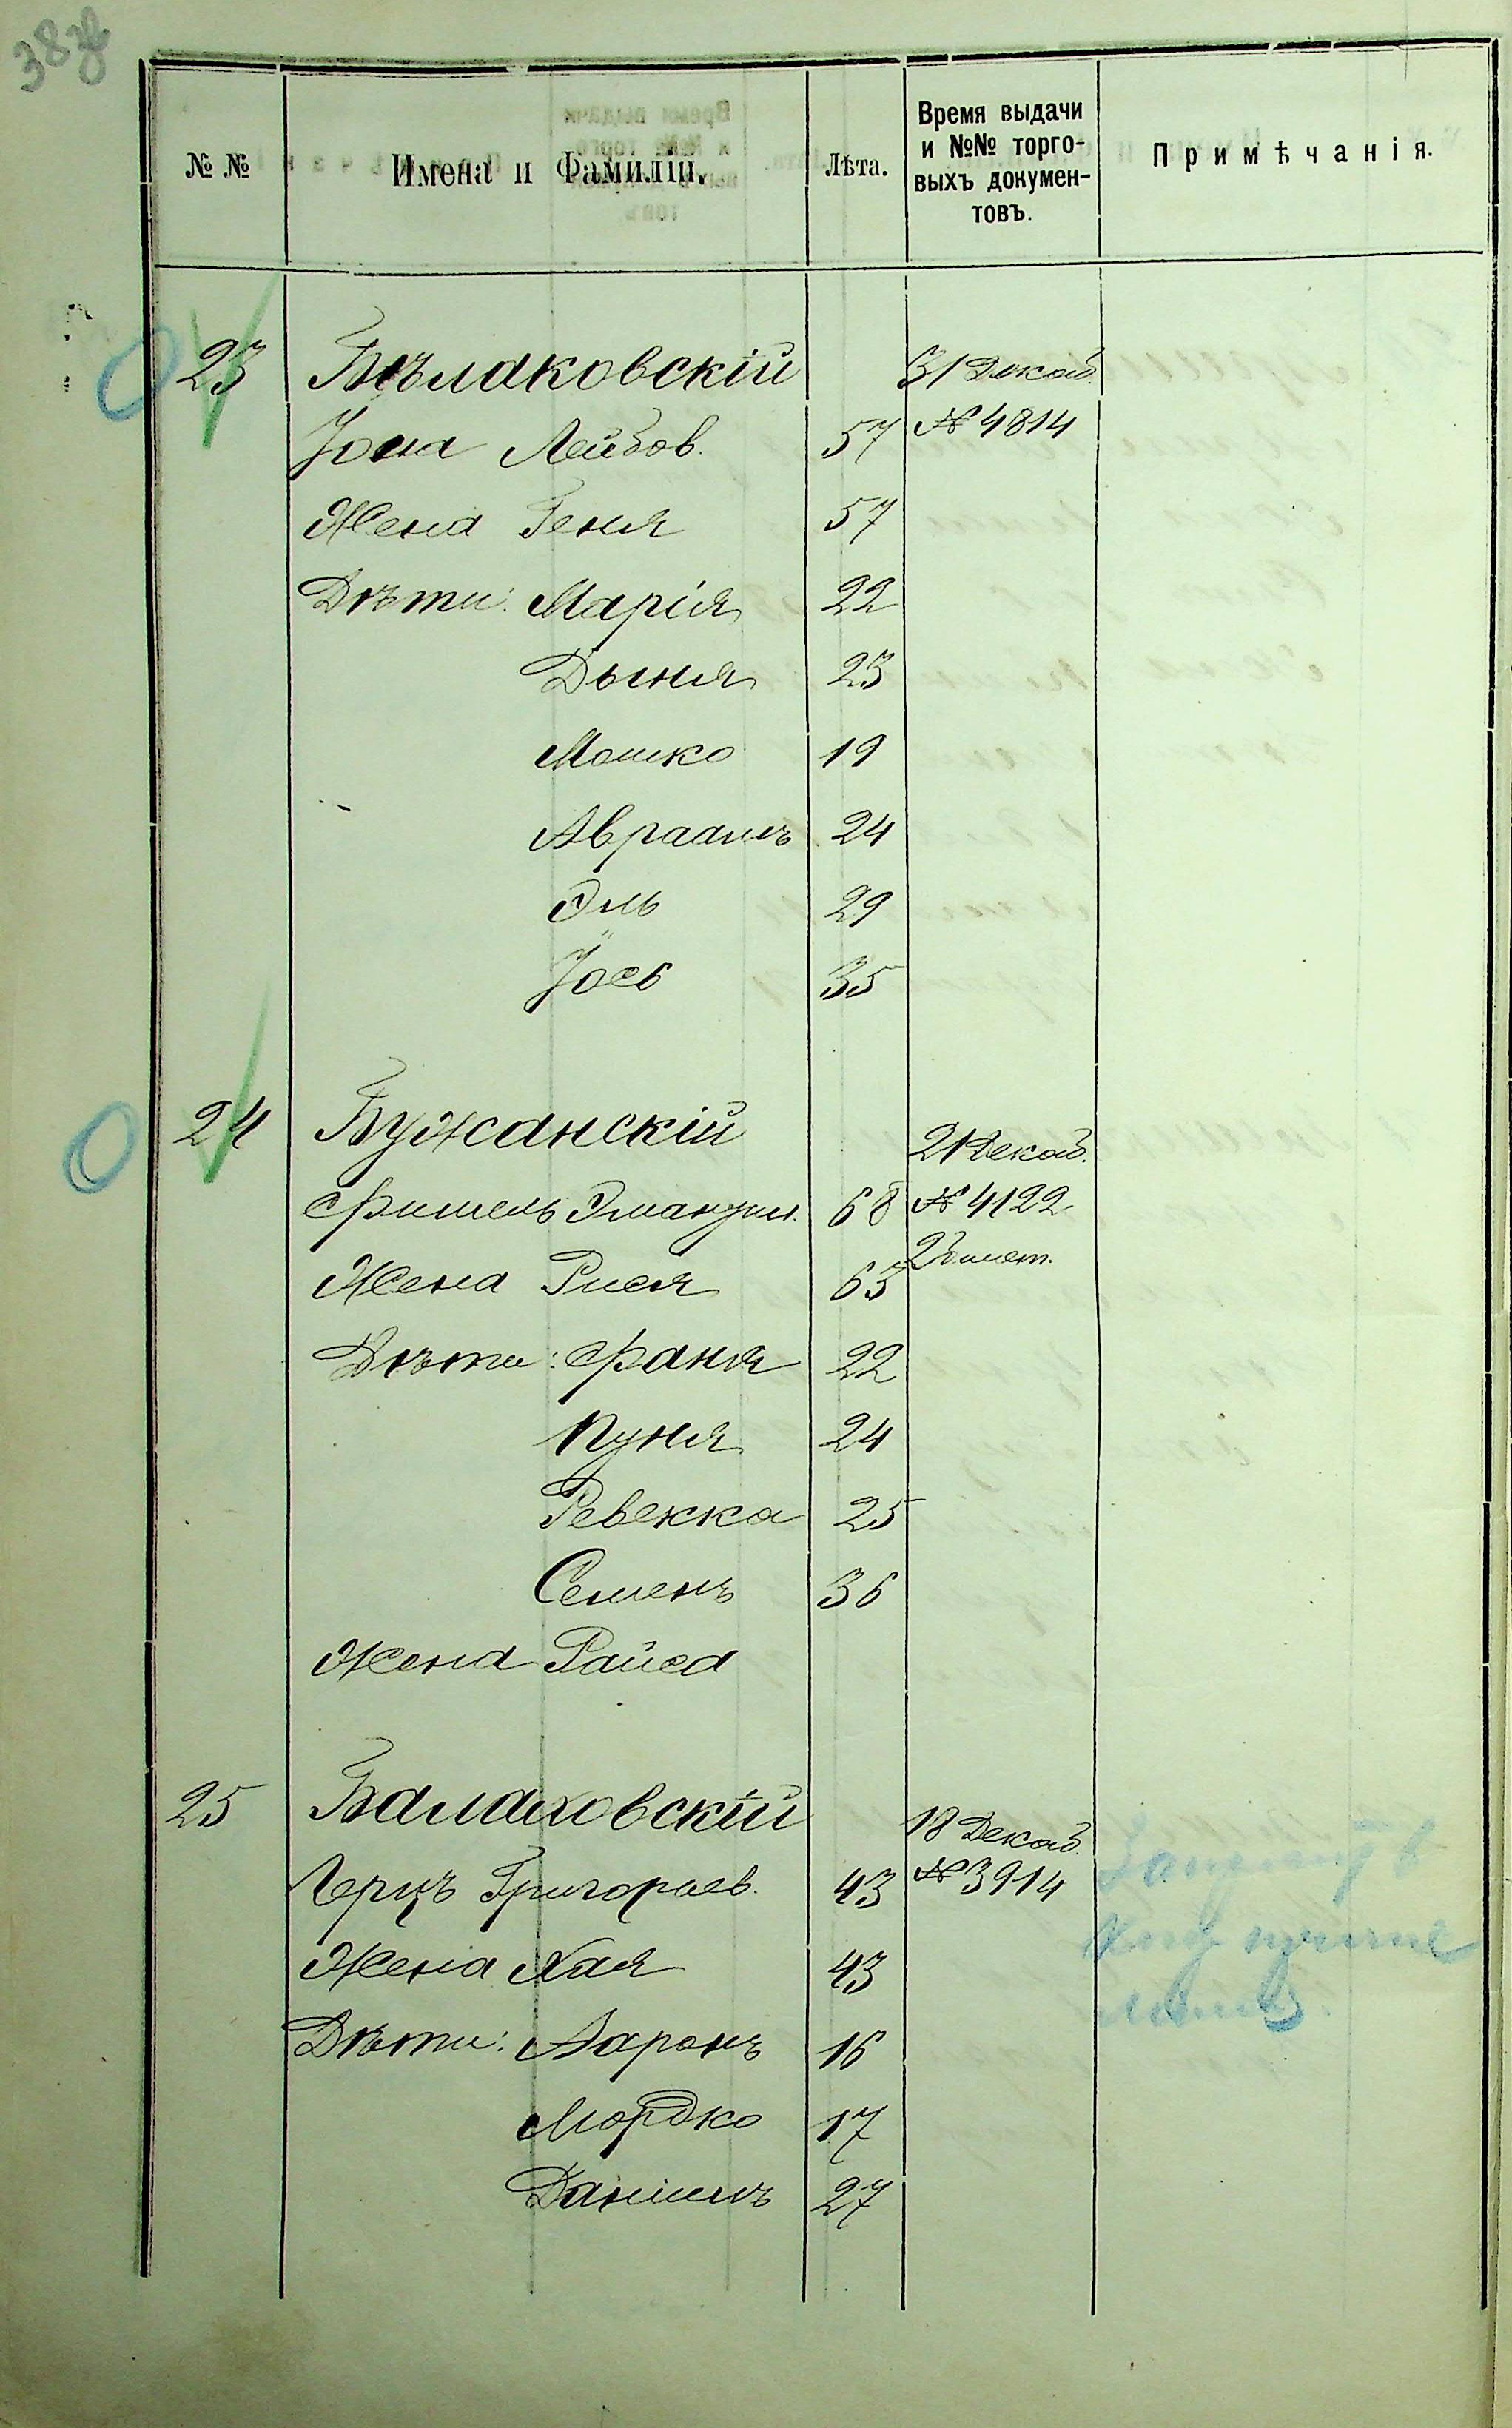 № №
Имена и Фамиліи.
Лѣта.
Время выдачи
и №№ торго-
выхъ докумен-
товъ.
Примѣчанія.
23 Бѣлаковскій 31 Декаб.
Іона Лейбов. 57 № 4814
Жена Геня 57
Дѣти: Марія 22
Дыня 23
Мошко 19
Авраамъ 24
Эль 29
Іось 35
24 Бужанскій 21 Декаб.
Фишель Эмануил. 68 № 4122
Жена Рися 63 2 билет.
Дѣти: Фаня 22
Пуня 24
Ревекка 25
Семенъ 36
Жена Раиса
25 Балаховскій 18 Декаб.
Герцъ Григорьев. 43 № 3914
Жена Хая 43
Дѣти: Ааронъ 16
Мордко 17
Даніилъ 27